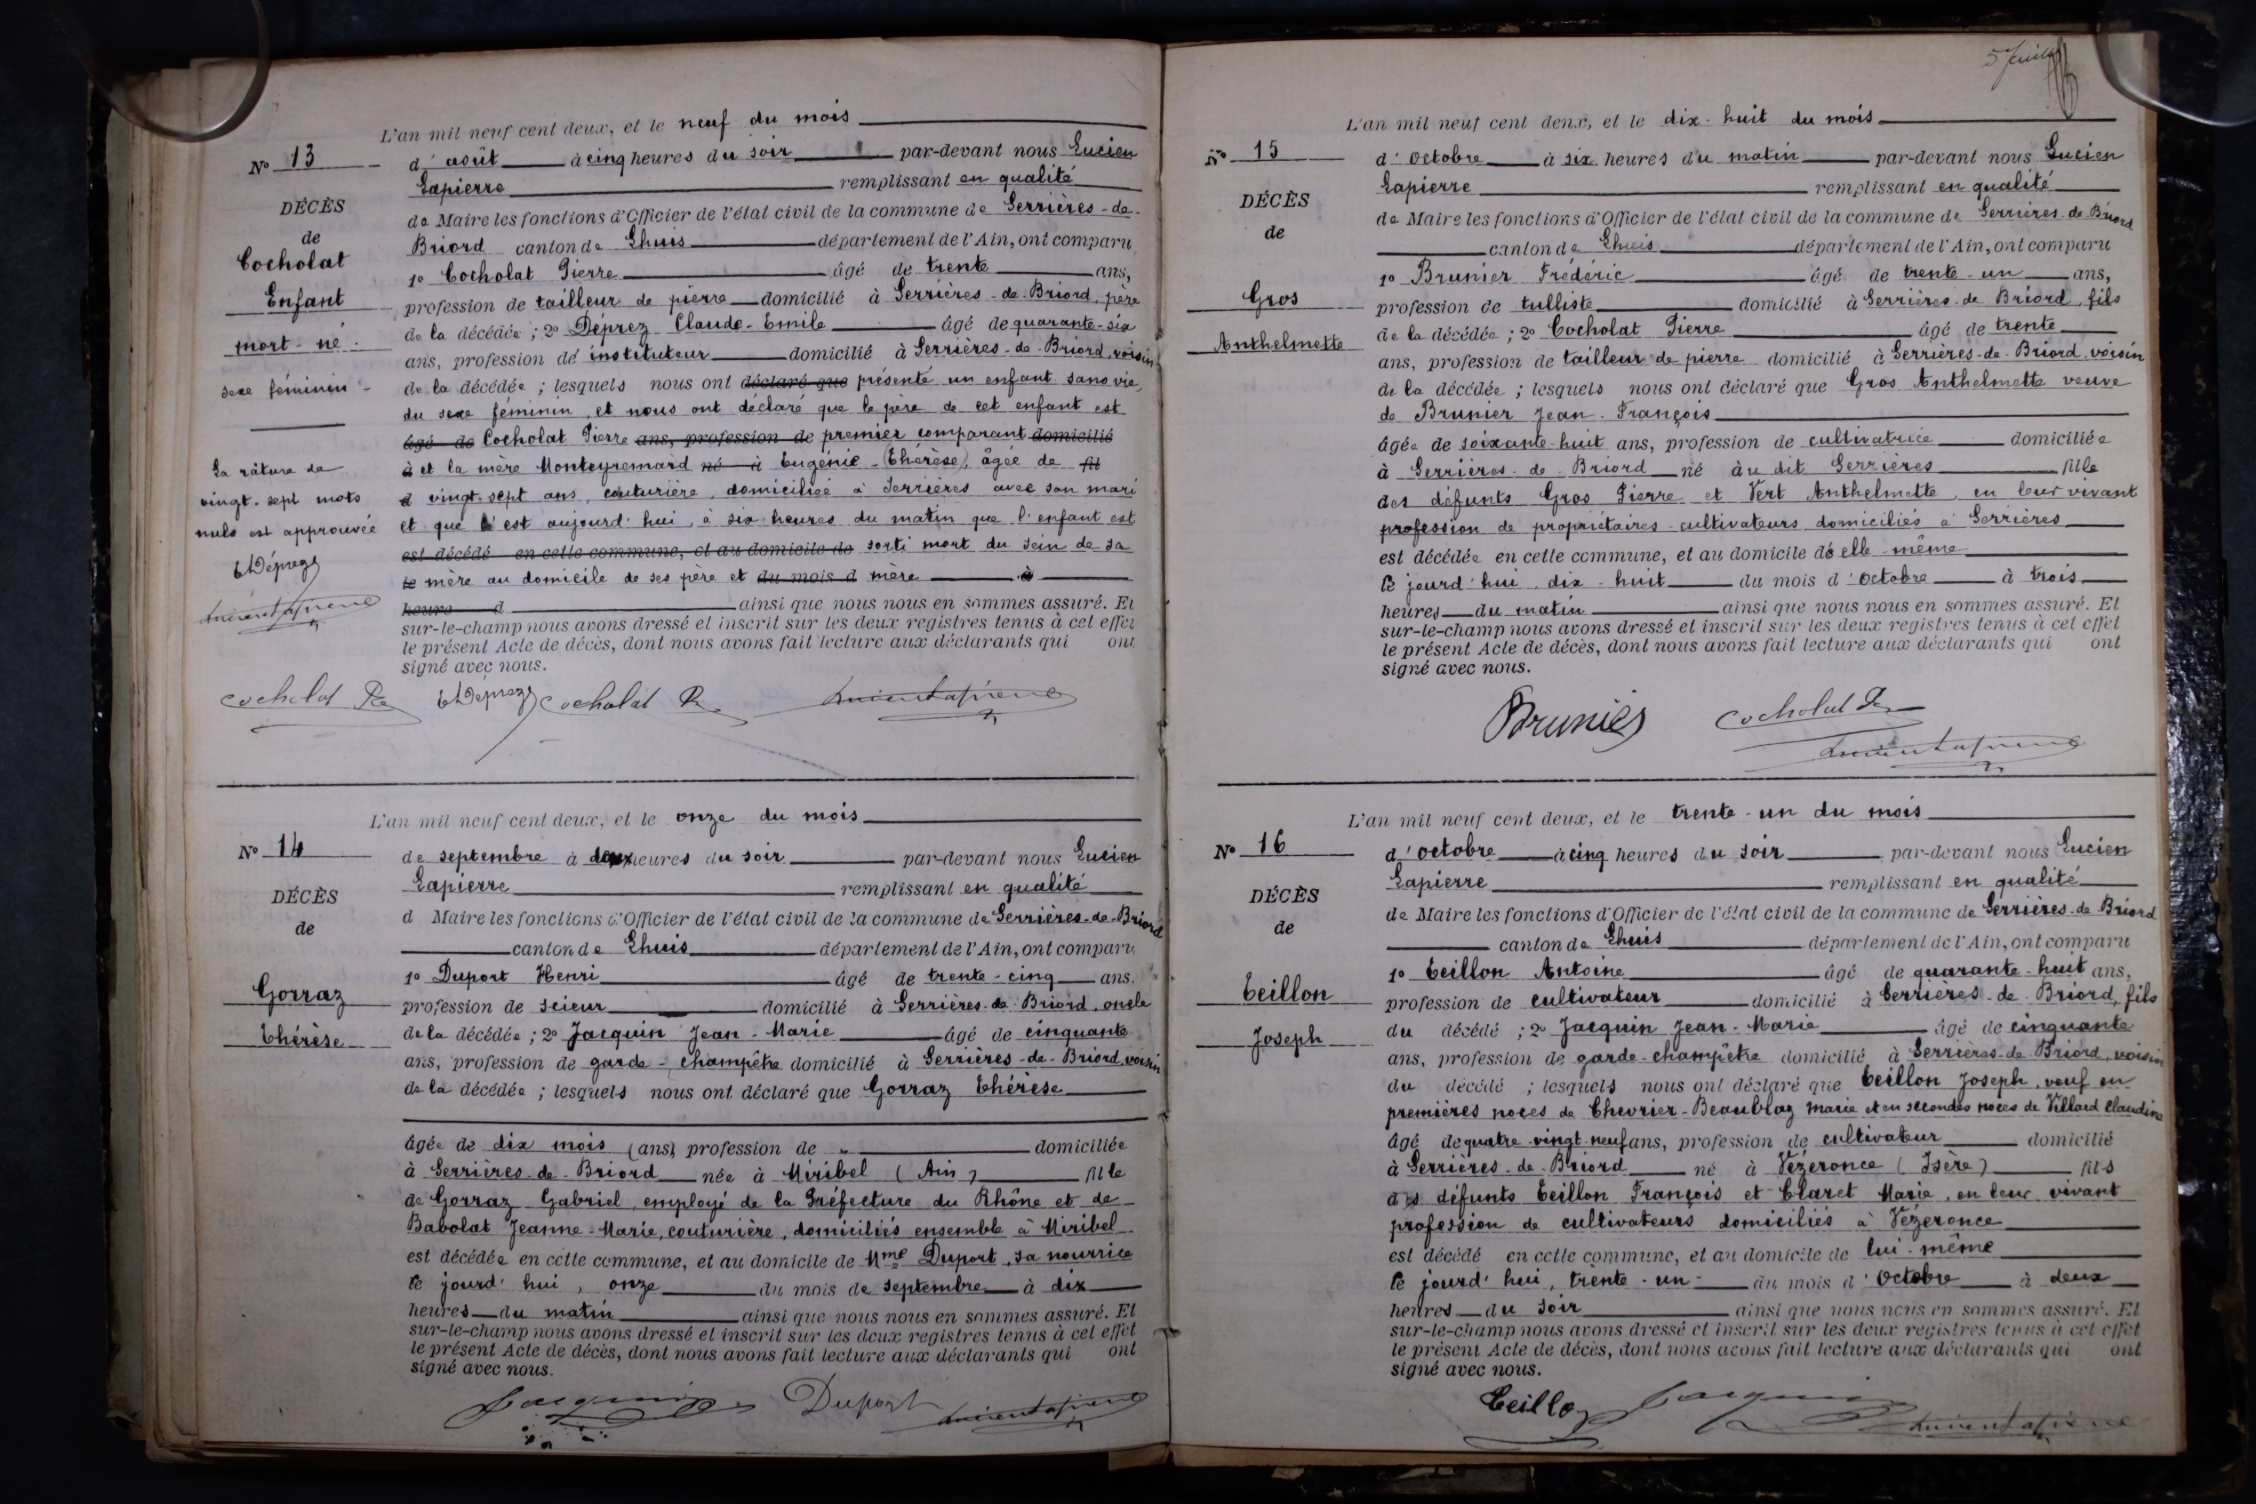 L'an mil neuf cent deux, et le neuf du mois
N° 13
d'août à cinq heures du soir par-devant nous Lucien
Lapierre remplissant en qualité
DÉCÈS
de Maire les fonctions d'Officier de l'état civil de la commune de Serrières-de-
de
Briord canton de Lhuis département de l'Ain, ont comparu
Cocholat
1° Cocholat Pierre âgé de trente ans,
Enfant
profession de tailleur de pierre domicilié à Serrières-de-Briord, père
mort-né.
de la décédée ; 2° Déprez Claude-Emile âgé de quarante-six
ans, profession de instituteur domicilié à Serrières-de-Briord, voisin
sexe féminin
de la décédée ; lesquels nous ont déclaré que présenté un enfant sans vie,
du sexe féminin, et nous ont déclaré que le père de cet enfant est
âgé de Cocholat Pierre ans, profession de premier comparant domicilié
La râture de
à et la mère Monteyremard né à Eugénie-(Thérèse), âgée de fil
vingt-sept mots
d vingt-sept ans, couturière, domiciliée à Serrières avec son mari
nuls est approuvée
et que c'est aujourd'hui, à six heures du matin que l'enfant est
est décédé en cette commune, et au domicile de sorti mort du sein de sa
EDéprez
le mère au domicile de ses père et du mois d mère à
Lucien Lapierre
heure d ainsi que nous nous en sommes assuré. Et
sur-le-champ nous avons dressé et inscrit sur les deux registres tenus à cet effet
le présent Acte de décès, dont nous avons fait lecture aux déclarants qui ont
signé avec nous.
Cocholat Pre EDéprez Cocholat Pre Lucien Lapierre
L'an mil neuf cent deux, et le onze du mois
N° 14
de septembre à deux heures du soir par-devant nous Lucien
Lapierre remplissant en qualité
DÉCÈS
d Maire les fonctions d'Officier de l'état civil de la commune de Serrières-de-Briord
de
canton de Lhuis département de l'Ain, ont comparu
1° Duport Henri âgé de trente-cinq ans.
Gorraz
profession de scieur domicilié à Serrières-de-Briord, oncle
Thérèse
de la décédée ; 2° Jacquin Jean-Marie âgé de cinquante
ans, profession de garde-champêtre domicilié à Serrières-de-Briord, voisin
de la décédée ; lesquels nous ont déclaré que Gorraz Thérèse
âgée de dix mois (ans) profession de " domiciliée
à Serrières-de-Briord née à Miribel (Ain) fille
de Gorraz Gabriel, employé de la Préfecture du Rhône et de
Babolat Jeanne-Marie, couturière, domiciliés ensemble à Miribel
est décédée en cette commune, et au domicile de Mme Duport, sa nourrice
le jourd'hui, onze du mois de septembre à dix
heures du matin ainsi que nous nous en sommes assuré. Et
sur-le-champ nous avons dressé et inscrit sur les deux registres tenus à cet effet
le présent Acte de décès, dont nous avons fait lecture aux déclarants qui ont
signé avec nous.
Jacquin Duport Lucien Lapierre
5 Feuillet
L'an mil neuf cent deux, et le dix-huit du mois
N° 15
d'octobre à six heures du matin par-devant nous Lucien
Lapierre remplissant en qualité
DÉCÈS
de Maire les fonctions d'Officier de l'état civil de la commune de Serrières-de-Briord
de
canton de Lhuis département de l'Ain, ont comparu
1° Brunier Frédéric âgé de trente-un ans,
Gros
profession de tulliste domicilié à Serrières-de-Briord, fils
Anthelmette
de la décédée ; 2° Cocholat Pierre âgé de trente
ans, profession de tailleur de pierre domicilié à Serrières-de-Briord, voisin
de la décédée ; lesquels nous ont déclaré que Gros Anthelmette veuve
de Brunier Jean-François
âgée de soixante-huit ans, profession de cultivatrice domiciliée
à Serrières-de-Briord né àu dit Serrières fille
des défunts Gros Pierre et Vert Anthelmette, en leur vivant
profession de propriétaires-cultivateurs domiciliés à Serrières
est décédée en cette commune, et au domicile de elle-même
le jourd'hui, dix-huit du mois d'octobre à trois
heures du matin ainsi que nous nous en sommes assuré. Et
sur-le-champ nous avons dressé et inscrit sur les deux registres tenus à cet effet
le présent Acte de décès, dont nous avons fait lecture aux déclarants qui ont
signé avec nous.
Brunier Cocholat Pre
Lucien Lapierre
L'an mil neuf cent deux, et le trente-un du mois
N° 16
d'octobre à cinq heures du soir par-devant nous Lucien
Lapierre remplissant en qualité
DÉCÈS
de Maire les fonctions d'Officier de l'état civil de la commune de Serrières-de-Briord
de
canton de Lhuis département de l'Ain, ont comparu
1° Teillon Antoine âgé de quarante-huit ans,
Teillon
profession de cultivateur domicilié à Serrières-de-Briord, fils
Joseph
du décédé ; 2° Jacquin Jean-Marie âgé de cinquante
ans, profession de garde-champêtre domicilié à Serrières-de-Briord, voisin
du décédé ; lesquels nous ont déclaré que Teillon Joseph, veuf en
premières noces de Chevrier-Beaublaz Marie et en secondes noces de Villard Claudine
âgé de quatre-vingt-neuf ans, profession de cultivateur domicilié
à Serrières-de-Briord né à Vézeronce (Isère) fils
des défunts Teillon François et Claret Marie, en leur vivant
profession de cultivateurs domiciliés à Vézeronce
est décédé en cette commune, et au domicile de lui-même
le jourd'hui, trente-un du mois d'octobre à deux
heures du soir ainsi que nous nous en sommes assuré. Et
sur-le-champ nous avons dressé et inscrit sur les deux registres tenus à cet effet
le présent Acte de décès, dont nous avons fait lecture aux déclarants qui ont
signé avec nous.
Teillon Jacquin Lucien Lapierre